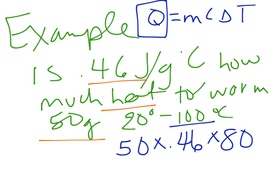 Example Q = mCΔT
is .46 J/g°C how
much heat to warm
50g 20° - 100°C
50 × .46 × 80